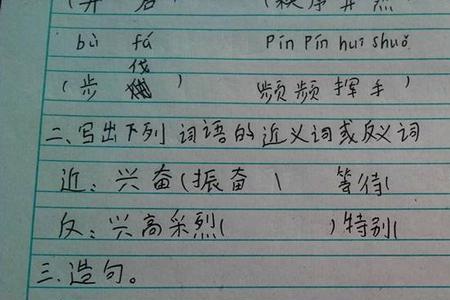 bù fá pín pín huī shuǒ
(步伐) 频频挥手
二、写出下列词语的近义词或反义词
近：兴奋(振奋) 等待(
反：兴高采烈( )特别(
三.造句。